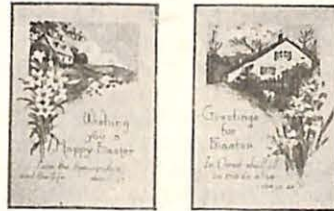 Wishing
you a
Happy Easter
I am the
and the life
Greetings
for
Easter
In Christ shall all
be made alive